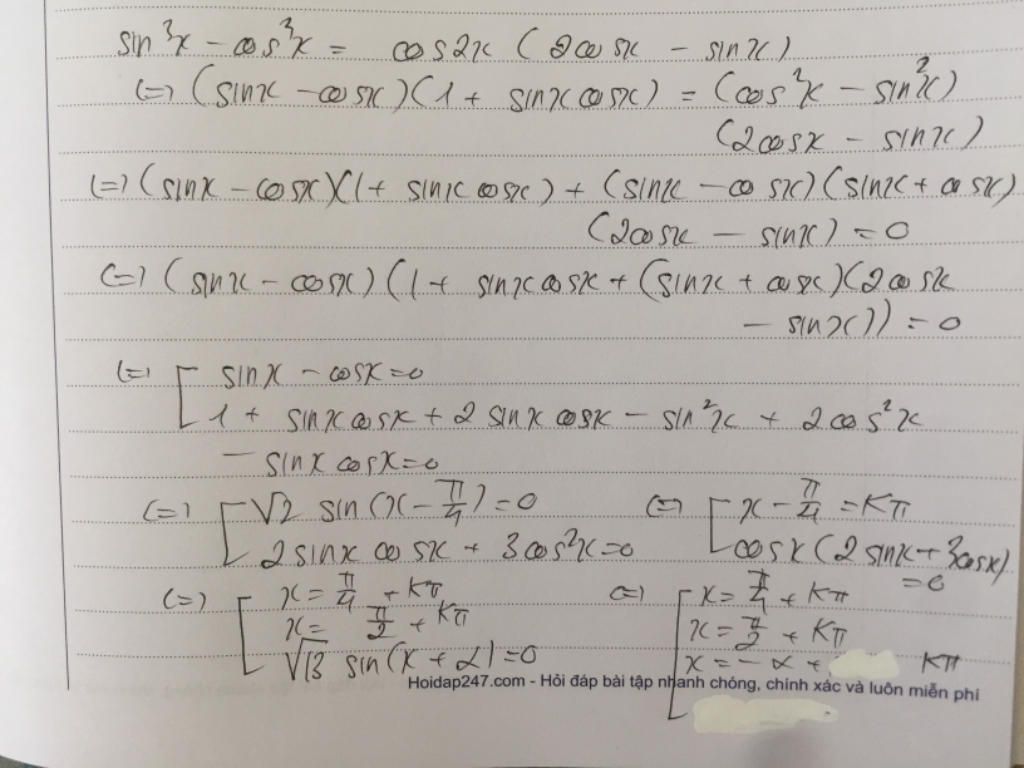 sin³x - cos³x = cos2x (2cosx - sinx)
(=) (sinx - cosx)(1 + sinxcosx) = (cos²x - sin²x)
(2cosx - sinx)
(=) (sinx - cosx)(1 + sinxcosx) + (sinx - cosx)(sinx + cosx)
(2cosx - sinx) = 0
(=) (sinx - cosx)(1 + sinxcosx + (sinx + cosx)(2cosx
- sinx)) = 0
(=) [ sinx - cosx = 0
1 + sinxcosx + 2sinxcosx - sin²x + 2cos²x
- sinxcosx = 0
(=) [ √2 sin(x - π/4) = 0 (=) [ x - π/4 = Kπ
2sinxcosx + 3cos²x = 0 cosx(2sinx + 3cosx)
= 0
(=) [ x = π/4 + Kπ (=) [ x = π/4 + Kπ
x = π/2 + Kπ x = π/2 + Kπ
√13 sin(x + α) = 0 x = -α + Kπ
Hoidap247.com - Hỏi đáp bài tập nhanh chóng, chính xác và luôn miễn phí